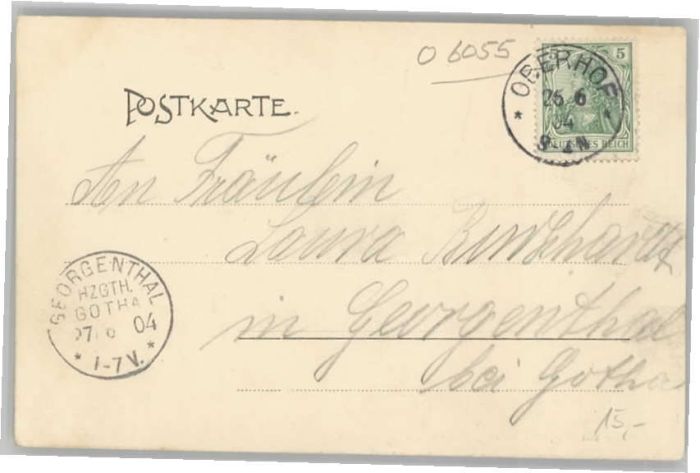 O 6055
5
OBERHOF
26 6
04
DEUTSCHES REICH
POSTKARTE.
An Fräulein
Laura Burkhardt
in Georgenthal
bei Gotha
GEORGENTHAL
HZGTH.
GOTHA
04
* 1-7 V. *
15,-